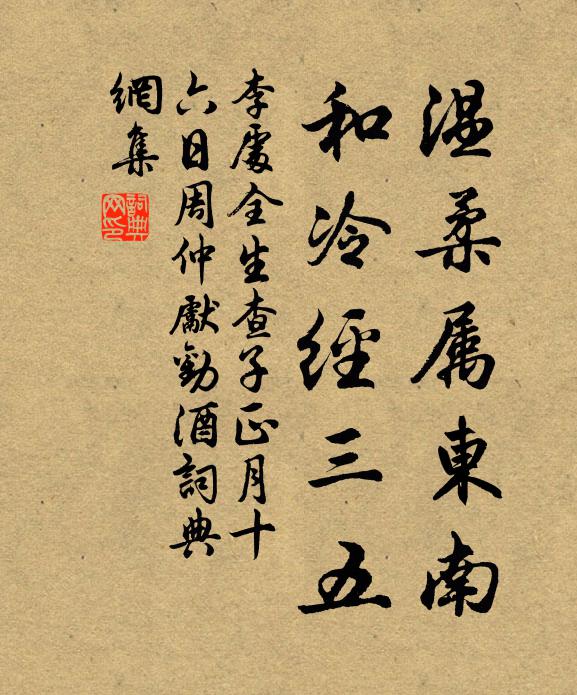 温柔属東南
和冷經三五
李處全生查子正月十
六日周仲獻勸酒詞典
網集
詞典网印